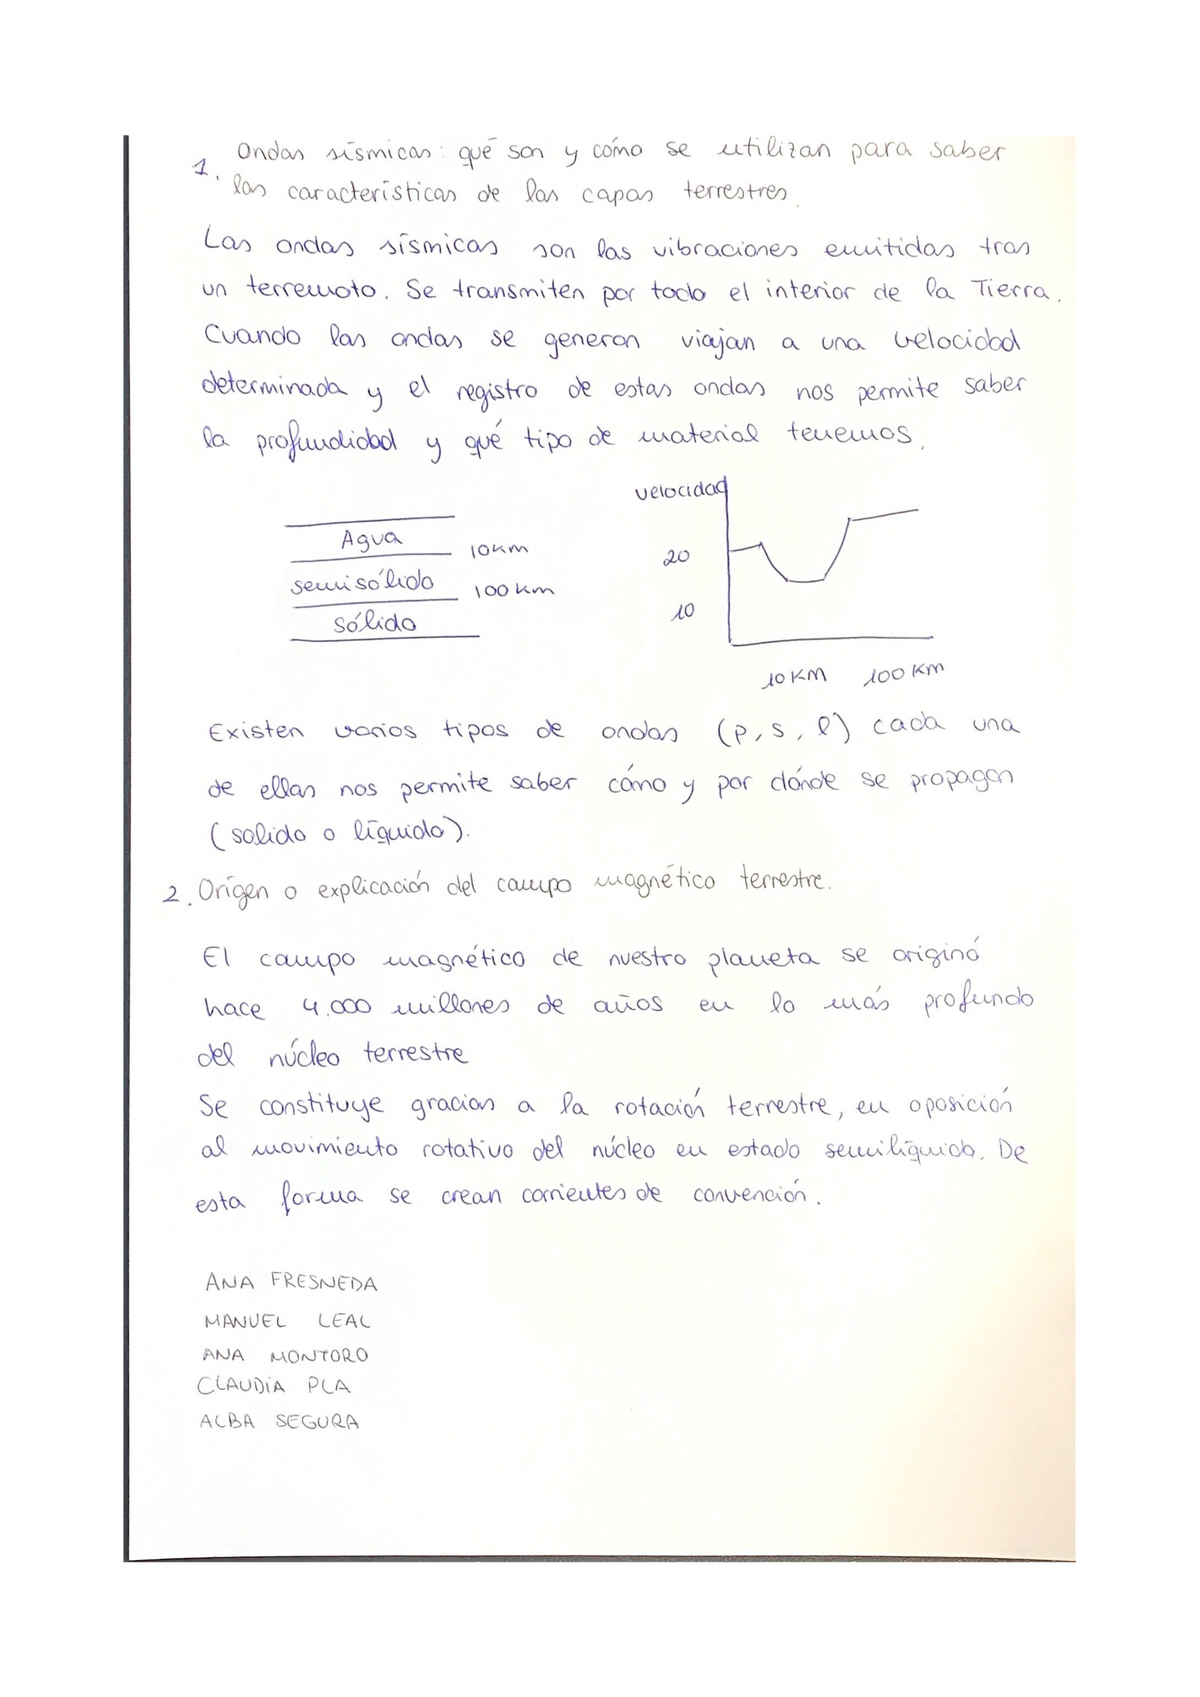 1. Ondas sísmicas: qué son y cómo se utilizan para saber
las características de las capas terrestres.
Las ondas sísmicas son las vibraciones emitidas tras
un terremoto. Se transmiten por todo el interior de la Tierra.
Cuando las ondas se generan viajan a una velocidad
determinada y el registro de estas ondas nos permite saber
la profundidad y qué tipo de material tenemos.
velocidad
Agua
10km
semisólido
100 km
sólido
20
10
10 KM 100 KM
Existen varios tipos de ondas (p, s, l) cada una
de ellas nos permite saber cómo y por dónde se propagan
(solido o líquido).
2. Orígen o explicación del campo magnético terrestre.
El campo magnético de nuestro planeta se originó
hace 4.000 millones de años en lo más profundo
del núcleo terrestre
Se constituye gracias a la rotación terrestre, en oposición
al movimiento rotativo del núcleo en estado semilíquido. De
esta forma se crean corrientes de convención.
ANA FRESNEDA
MANUEL LEAL
ANA MONTORO
CLAUDIA PLA
ALBA SEGURA